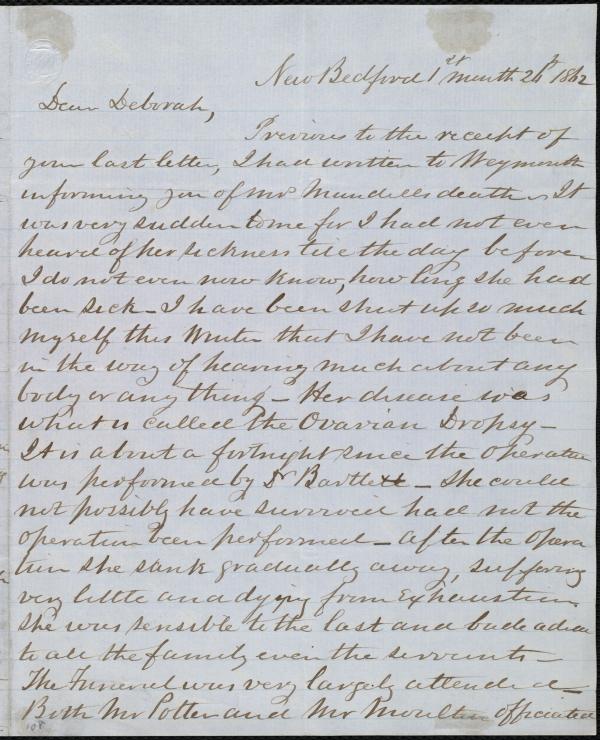 New Bedford 1st month 24th 1862
Dear Deborah,
Previous to the receipt of
your last letter, I had written to Weymouth
informing you of Mrs Mandells death - It
was very sudden to me for I had not even
heard of her sickness till the day before
I do not even now know, how long she had
been sick - I have been shut up so much
myself this Winter that I have not been
in the way of hearing much about any
body or any thing - Her disease was
what is called the Ovarian Dropsy -
It is about a fortnight since the operation
was performed by Dr Bartlett - She could
not possibly have survived had not the
operation been performed - after the opera
tion she sank gradually away, suffering
very little and dying from Exhaustion
She was sensible to the last and bade adieu
to all the family even the servants -
The Funeral was very largely attended -
Both Mr Potter and Mr Moulton officiated
108